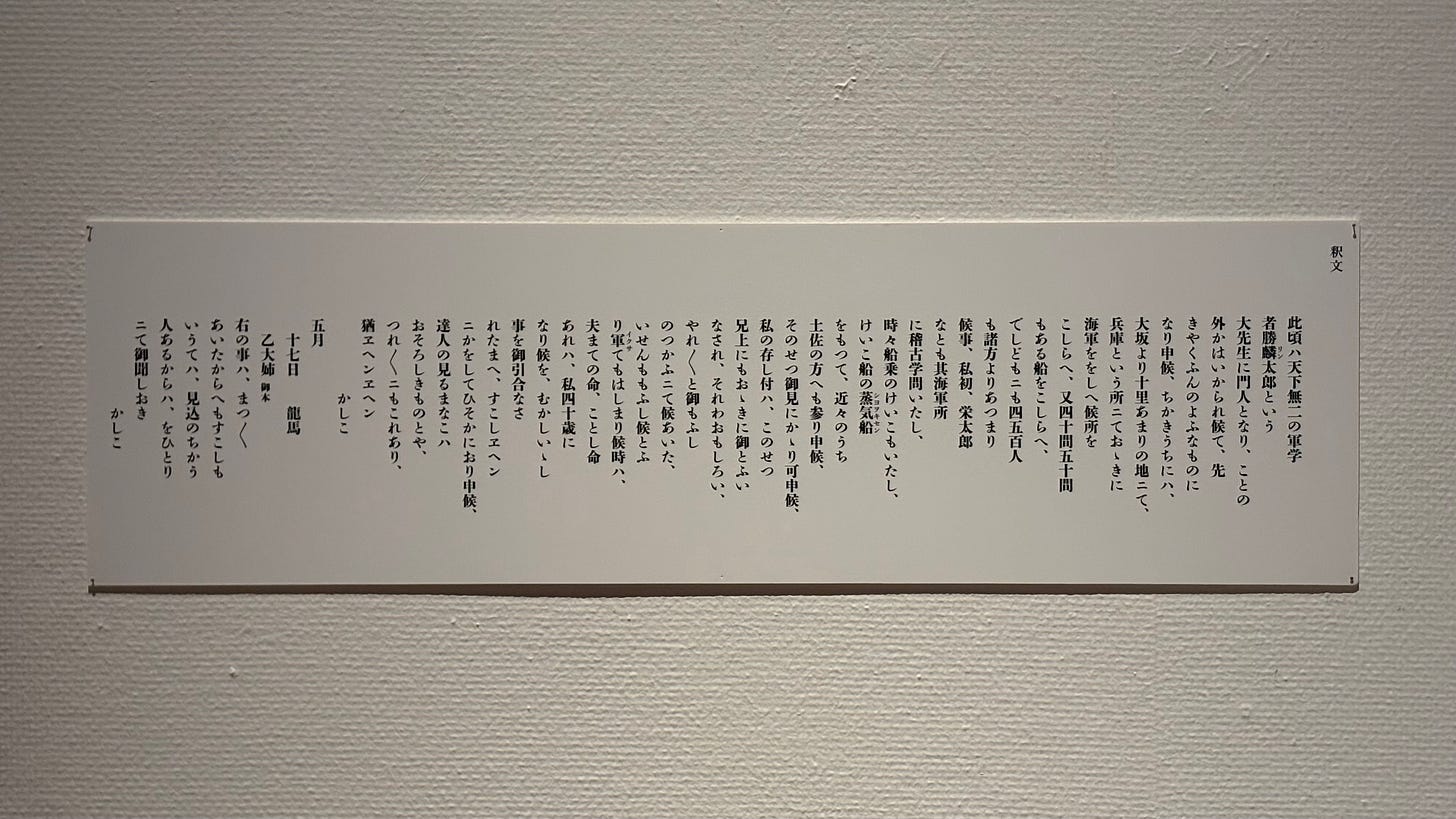 釈文
此頃ハ天下無二の軍学
者勝麟太郎という
リン
大先生に門人となり、ことの
外かはいかられ候て、先
きやくふんのよふなものに
なり申候、ちかきうちにハ、
大坂より十里あまりの地ニて、
兵庫という所ニておゝきに
海軍ををしへ候所を
こしらへ、又四十間五十間
もある船をこしらへ、
でしどもニも四五百人
も諸方よりあつまり
候事、私初、栄太郎
なとも其海軍所
に稽古学問いたし、
時々船乗のけいこもいたし、
けいこ船の蒸気船
ショフキセン
をもつて、近々のうち
土佐の方へも参り申候、
そのせつ御見にかゝり可申候、
私の存し付ハ、このせつ
兄上にもおゝきに御とふい
なされ、それわおもしろい、
やれ〳〵と御もふし
のつかふニて候あいた、
いせんももふし候とふ
り軍てもはしまり候時ハ、
イクサ
夫まての命、ことし命
あれハ、私四十歳に
なり候を、むかしいゝし
事を御引合なさ
れたまへ、すこしヱヘン
ニかをしてひそかにおり申候、
達人の見るまなこハ
おそろしきものとや、
つれ〳〵ニもこれあり、
猶ヱヘンヱヘン
かしこ
五月
十七日　龍馬
乙大姉 御本
右の事ハ、まつ〳〵
あいたからへもすこしも
いうてハ、見込のちかう
人あるからハ、をひとり
ニて御聞しおき
かしこ